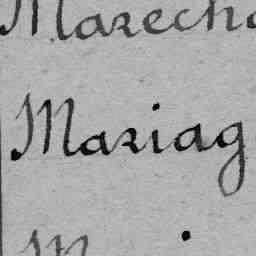 Marech
Mariag